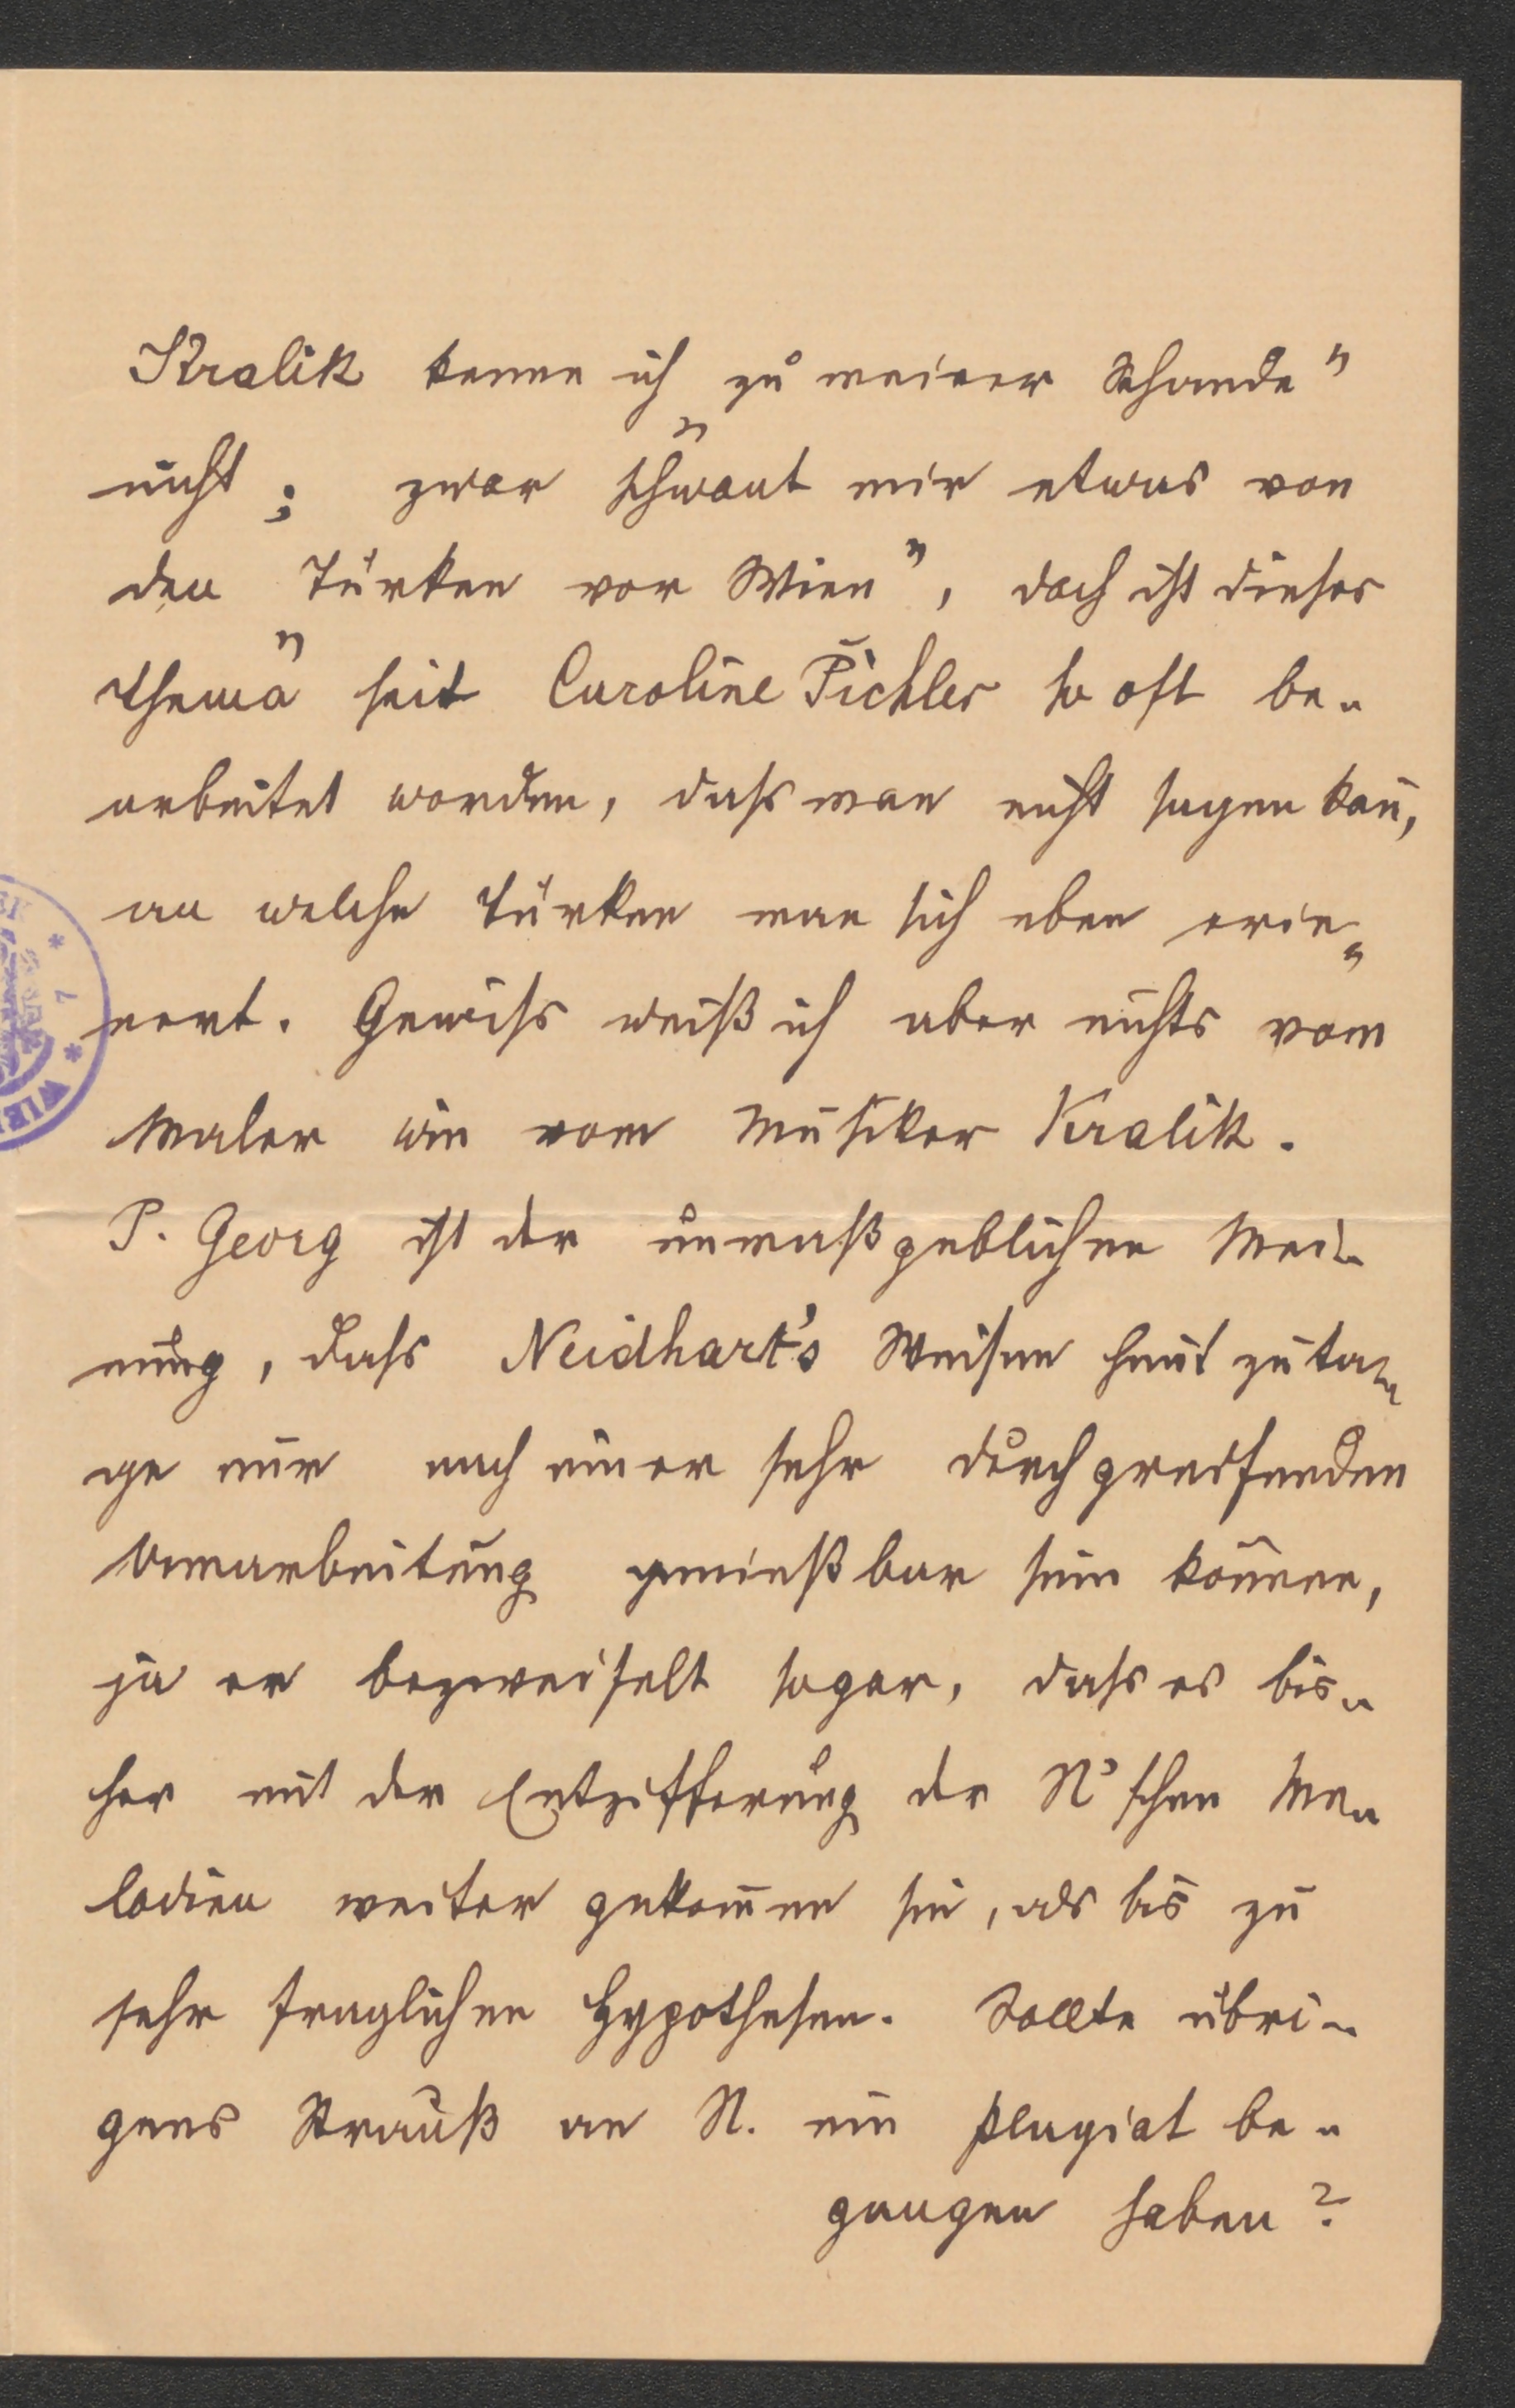 Kralik kenne ich „zu meiner Schande"
nicht; zwar schwant mir etwas von
den „Türken vor Wien", doch ist dieses
Thema seit Caroline Pichler so oft be-
arbeitet worden, dass man nicht sagen kan̄,
an welche Türken man sich eben erin-
nert. Gewiss weiß ich aber nichts vom
Maler wie vom Musiker Kralik.
P. Georg ist der unmaßgeblichen Mei-
nung, dass Neidhart's Weisen heut zu ta-
ge nur nach einer sehr durchgreifenden
Umarbeitung genießbar sein kön̄en,
ja er bezweifelt sogar, dass es bis-
her mit der Entzifferung der N'schen Me-
lodien weiter gekom̄en sei, als bis zu
sehr fraglichen Hypothesen. Sollte übri-
gens Strauß an N. ein Plagiat be-
gangen haben?
* 7 *
WIE